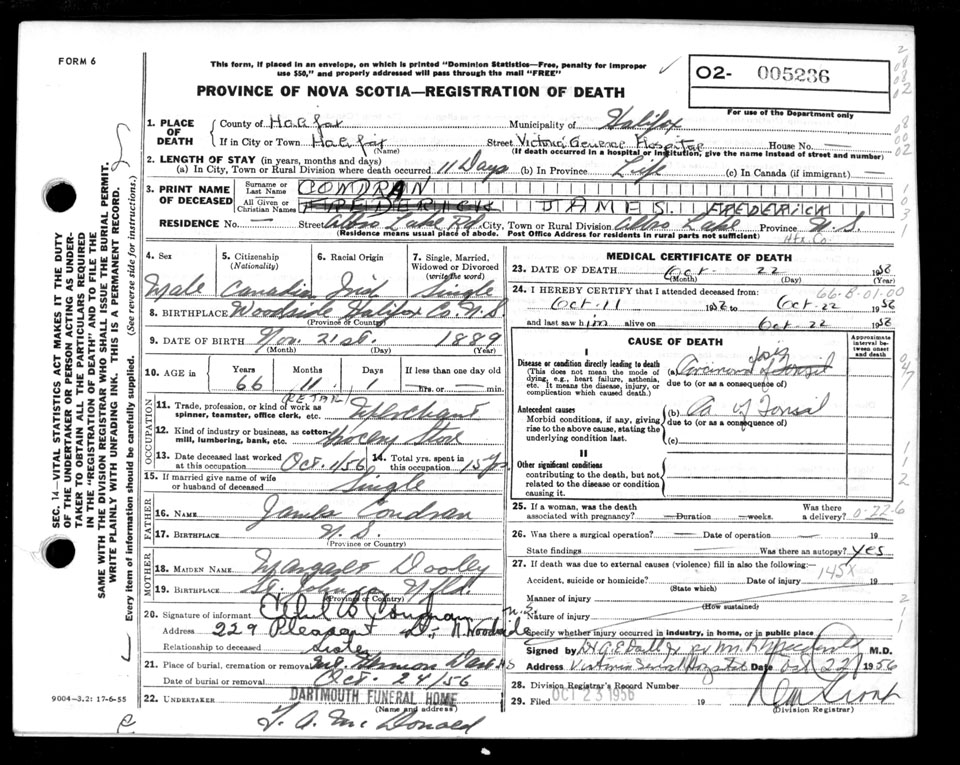 FORM 6
This form, if placed in an envelope, on which is printed "Dominion Statistics—Free, penalty for improper
use $50," and properly addressed will pass through the mail "FREE"
02- 005236
PROVINCE OF NOVA SCOTIA—REGISTRATION OF DEATH
For use of the Department only
1. PLACE OF DEATH
County of Halifax Municipality of Halifax
If in City or Town Halifax (Name) Street Victoria General Hospital House No. —
(If death occurred in a hospital or institution, give the name instead of street and number)
2. LENGTH OF STAY (in years, months and days)
(a) In City, Town or Rural Division where death occurred 11 Days (b) In Province Life (c) In Canada (if immigrant) —
3. PRINT NAME OF DECEASED
Surname or Last Name CONDRAN
All Given or Christian Names FREDERICK JAMES. FREDERICK
RESIDENCE No. — Street Albro Lake Rd. City, Town or Rural Division Albro Lake Province N.S.
(Residence means usual place of abode. Post Office Address for residents in rural parts not sufficient) Hfx. Co.
4. Sex
Male
5. Citizenship (Nationality)
Canadian
6. Racial Origin
Irish
7. Single, Married, Widowed or Divorced (write the word)
Single
8. BIRTHPLACE Woodside Halifax Co. N.S.
(Province or Country)
9. DATE OF BIRTH Nov. 21st. 1889
(Month) (Day) (Year)
10. AGE in Years 66 Months 11 Days 1 If less than one day old hrs. or — min.
OCCUPATION
11. Trade, profession, or kind of work as spinner, teamster, office clerk, etc. (RETAIL) Merchant
12. Kind of industry or business, as cotton-mill, lumbering, bank, etc. Grocery Store
13. Date deceased last worked at this occupation Oct. 1/56
14. Total yrs. spent in this occupation 15 yrs
15. If married give name of wife or husband of deceased Single
FATHER
16. NAME James Condran
17. BIRTHPLACE N.S.
(Province or Country)
MOTHER
18. MAIDEN NAME Margaret Dooley
19. BIRTHPLACE St. John's Nfld.
(Province or Country)
20. Signature of informant
Address 229 Pleasant St. N Woodside N.S.
Relationship to deceased Sister
21. Place of burial, cremation or removal Mt. Hermon Dart. N.S
Date of burial or removal Oct. 24/56
22. UNDERTAKER DARTMOUTH FUNERAL HOME
(Name and address)
T. A. McDonald
9004—3.2: 17-6-55
MEDICAL CERTIFICATE OF DEATH
23. DATE OF DEATH Oct. 22 1956
(Month) (Day) (Year)
24. I HEREBY CERTIFY that I attended deceased from: 66-8-01-00
Oct. 11 1956 to Oct-22 1956
and last saw him alive on Oct-22 1956
CAUSE OF DEATH
Approximate interval between onset and death
I
Disease or condition directly leading to death
(This does not mean the mode of dying, e.g., heart failure, asthenia, etc. It means the disease, injury, or complication which caused death.)
(a)
due to (or as a consequence of)
Antecedent causes
Morbid conditions, if any, giving rise to the above cause, stating the underlying condition last.
(b) Ca of Tonsil
due to (or as a consequence of)
(c)
II
Other significant conditions
contributing to the death, but not related to the disease or condition causing it.
25. If a woman, was the death associated with pregnancy? — Duration — weeks. Was there a delivery? 0-22-6
26. Was there a surgical operation? — Date of operation — 19
State findings — Was there an autopsy? Yes
27. If death was due to external causes (violence) fill in also the following:—
Accident, suicide or homicide? Date of injury 145X 19
(State which)
Manner of injury
(How sustained)
Nature of injury
Specify whether injury occurred in industry, in home, or in public place
Signed by M.D.
Address Victoria General Hospital Date Oct 22 1956
28. Division Registrar's Record Number
29. Filed OCT 23 1956 19
(Division Registrar)
SEC. 14—VITAL STATISTICS ACT MAKES IT THE DUTY
OF THE UNDERTAKER OR PERSON ACTING AS UNDER-
TAKER TO OBTAIN ALL THE PARTICULARS REQUIRED
IN THE "REGISTRATION OF DEATH" AND TO FILE THE
SAME WITH THE DIVISION REGISTRAR WHO SHALL ISSUE THE BURIAL PERMIT.
WRITE PLAINLY WITH UNFADING INK. THIS IS A PERMANENT RECORD.
Every item of information should be carefully supplied. (See reverse side for instructions.)